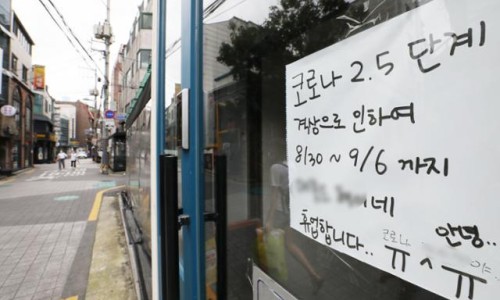 코로나 2.5 단계
격상으로 인하여
8/30 ~ 9/6 까지
네
휴업합니다.. 코로나 안녕..
ㅠ^ㅠ